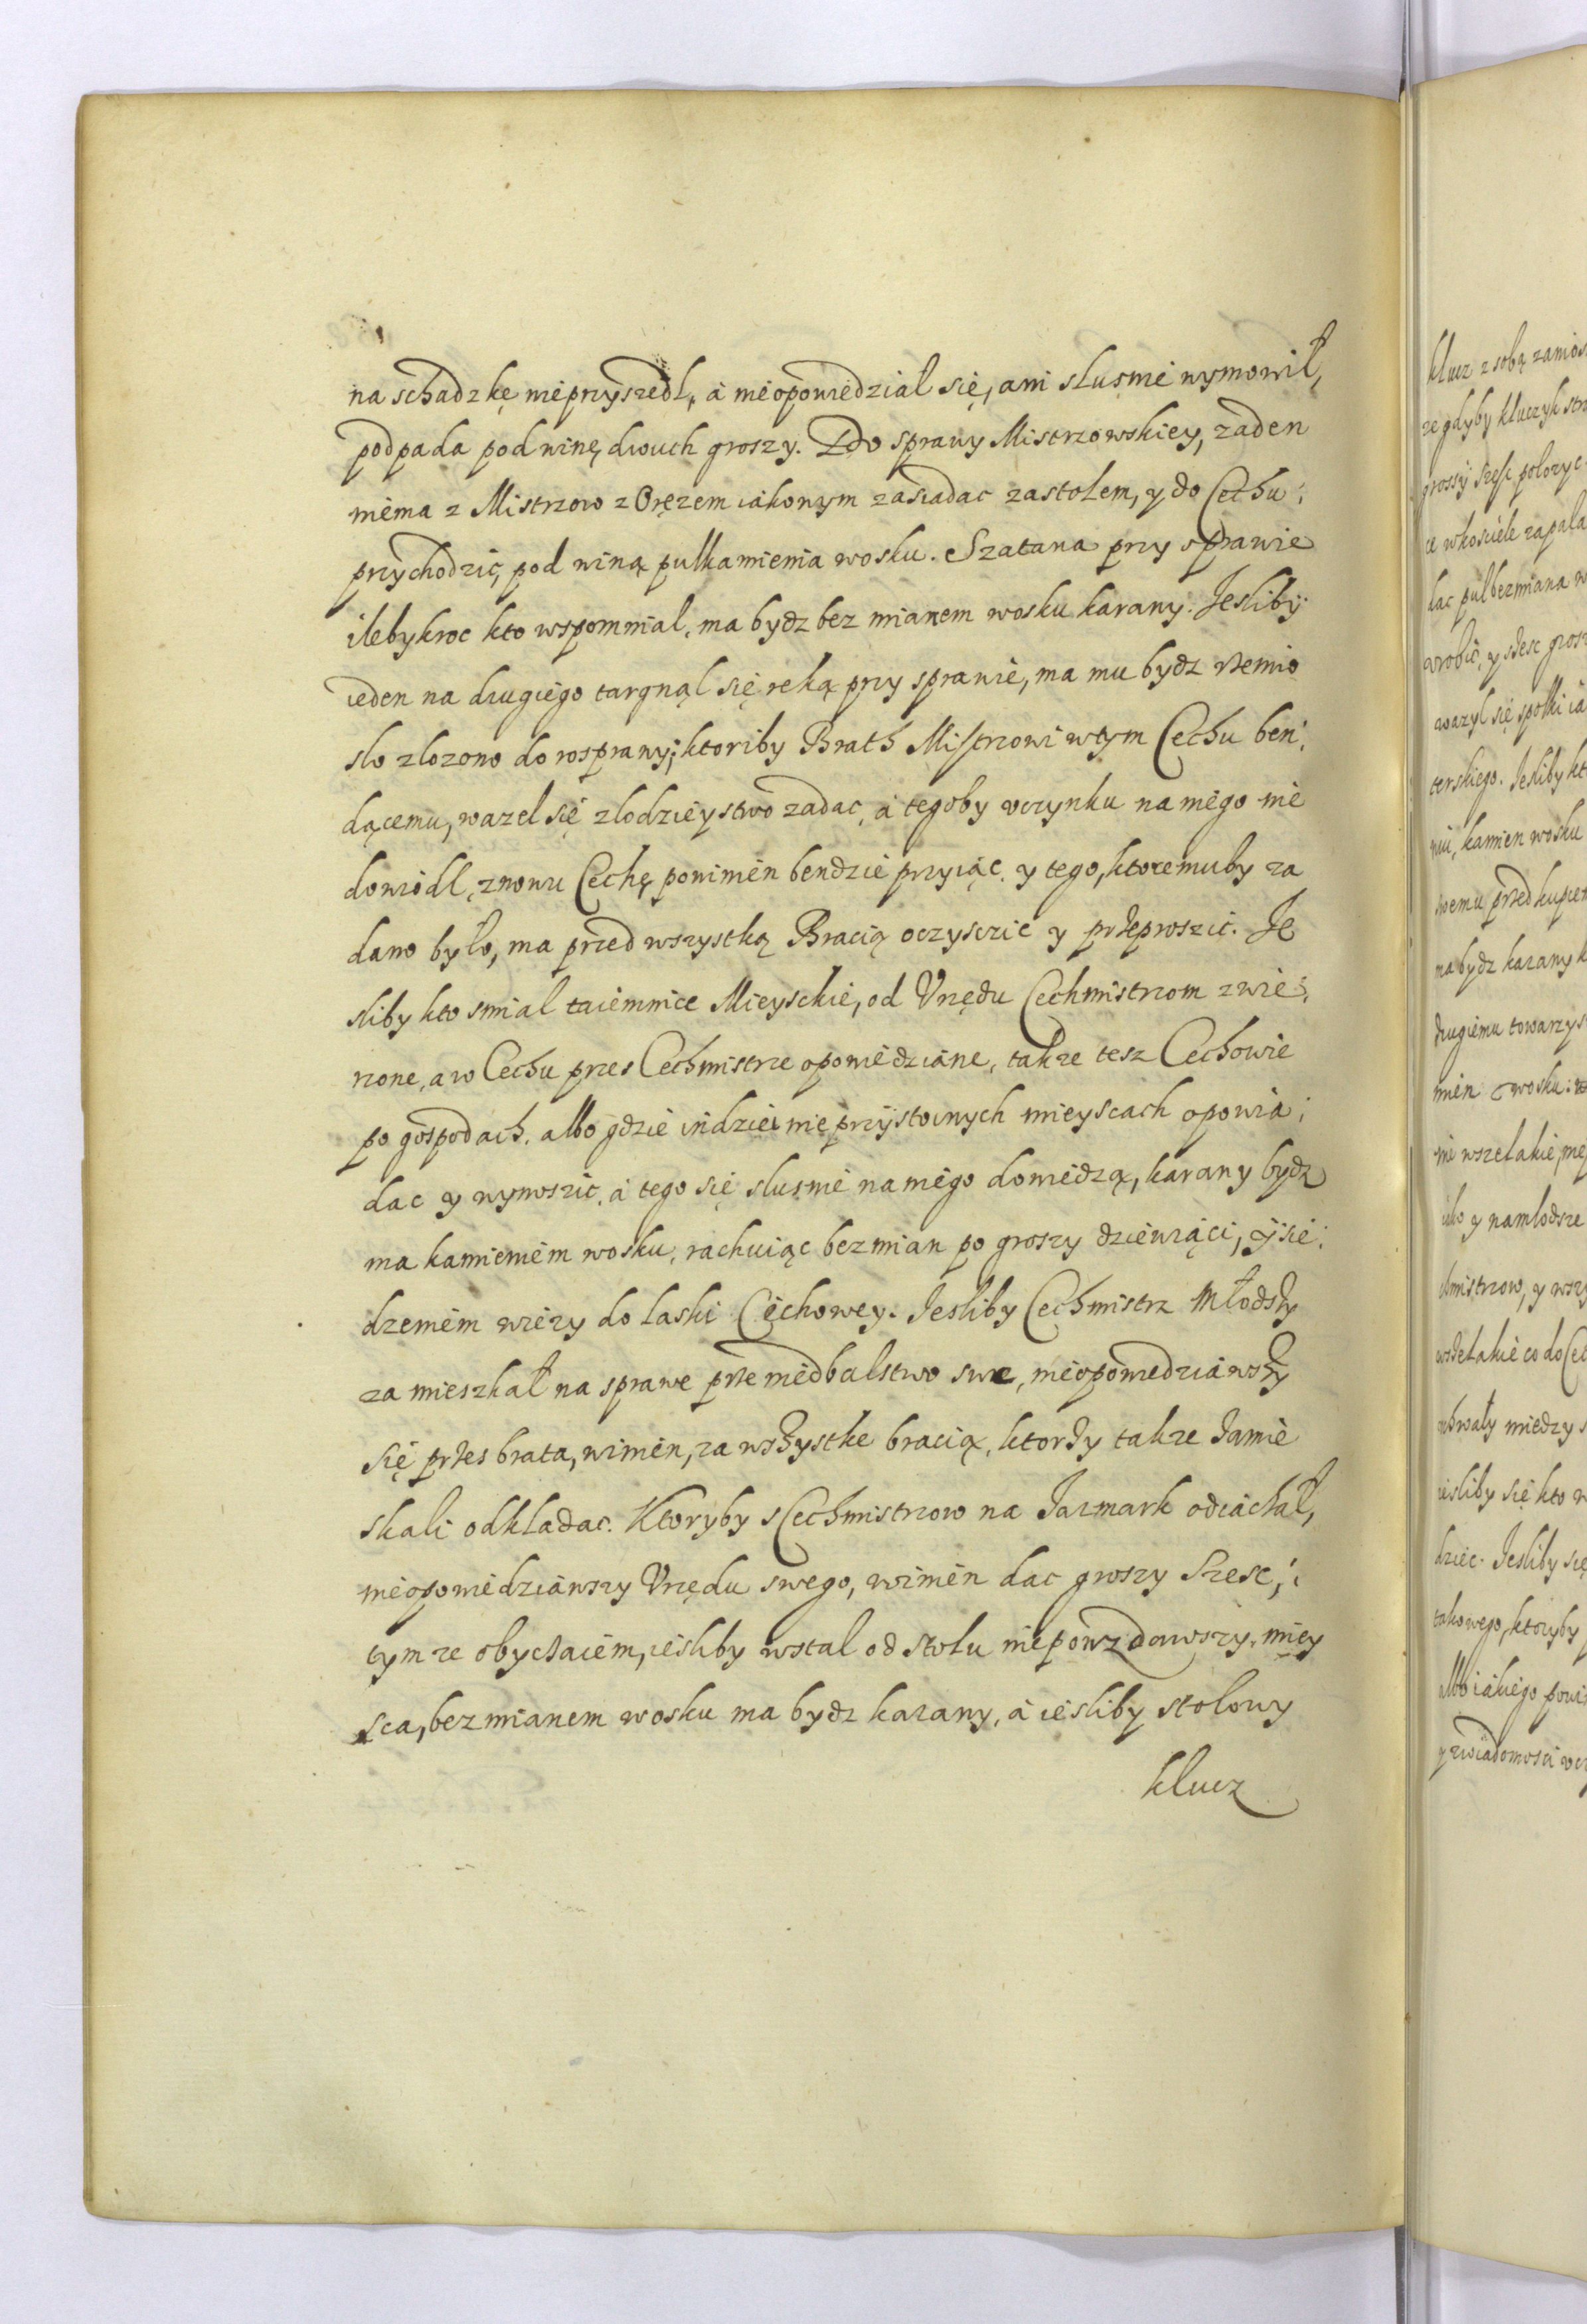 na schadzkę nieprzyszedł, á nieopowiedział się, ani słusnie wymowił,
podpada pod winę, dwuch groszy. Do sprawy Mistrzowskiey, zaden
niema z Mistrzow z Oręzem iakowym zasiadac zastołem, y do Cechu
przychodzić, pod winą pułkamienia wosku. Szatana przy sprawie
ilebykroc kto wspomniał, ma bydz bezmianem wosku karany. Jesliby
ieden na drugiego targnął się ręką przy sprawie, ma mu bydz rzemio
sło złozono do rosprawy; ktoriby Brath Mistrzowi wtym Cechu ben:
dącemu, wazeł się złodzieystwo zadac, á tegoby vczynku na niego nie
dowiodł, znowu Cechę powinien bendzie przyiąc, y tego, ktoremuby za
dano było, ma przed wszystką Bracią oczysczic y przeproszic. Je
sliby kto smiał taiemnice Mieysckie, od Vrzędu Cechmistrzom zwie:
rzone, a w Cechu przes Cechmistrze opowiedziane, takze tesz Cechowe
po gospodach, albo gdzie indziei nieprzystoinych mieyscach opowia:
dac y wynoszic, á tego się słusnie na niego dowiedzą, karany bydz
ma kamieniem wosku, rachuiąc bezmian po groszy dziewiąci, y sie:
dzeniem wiezy do łaski Cechowey. Jesliby Cechmistrz Młodszy
zamieszkał na sprawe prze niedbalstwo swe, nieopowiedziawszy
się przes brata, winien, za wszystke bracią, ktorzy takze zamie
skali odkładac. Ktoryby s Cechmistrzow na Jarmark odiachał,
nieopowiedziawszy Vrzędu swego, winien dac groszy szesc,
tymze obyczaiem, iesliby wstał od stołu niepowzdawszy miey
sca, bezmianem wosku ma bydz karany, á iesliby stołowy
klucz
klucz z sobą zanios
ze gdyby kluczyk str
groszy szesc połozyc
ce wkosciele zapala
dac pułbezmiana w
wrobic, y szesc grosz
wazył się społki ia
terskiego. Jesliby kt
niu, kamien wosku
swemu przed kupcem
ma bydz karany k
drugiemu towarzys
mien wosku
ni wszelakie, mę
iko y namłodsze
chmistrzow, y wszy
wszelakie co do Cec
chwały miedzy s
iesliby się kto w
dziec. Jesliby się
takowego, ktoryby
albo iakiego powi
y zwiadomosci vcz